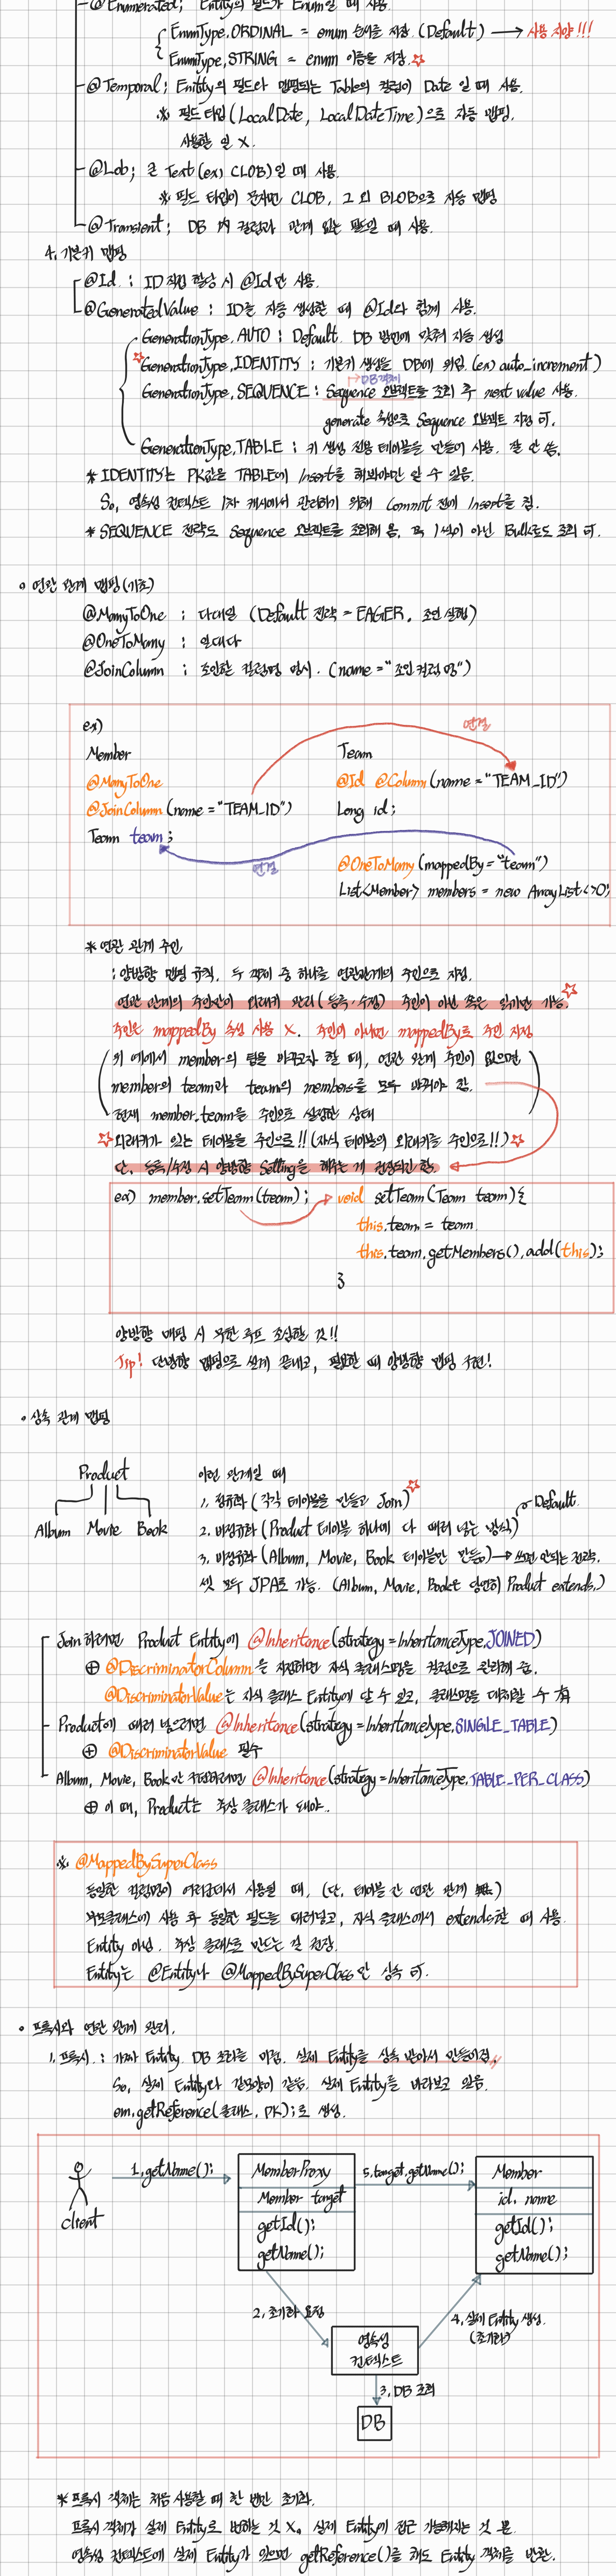 @Enumerated; Entity의 필드가 Enum일 때 사용.
EnumType.ORDINAL = enum 순서를 저장. (Default) → 사용 지양!!!
EnumType.STRING = enum 이름을 저장. ☆
@Temporal; Entity의 필드와 맵핑되는 Table의 컬럼이 Date 일 때 사용.
※ 필드 타입(LocalDate, LocalDateTime)으로 자동 맵핑.
사용할 일 X.
@Lob; 큰 Text(ex) CLOB)일 때 사용.
※ 필드 타입이 문자면 CLOB, 그 외 BLOB으로 자동 맵핑
@Transient; DB 내 컬럼과 관계 없는 필드일 때 사용.
4. 기본키 맵핑
@Id : ID 직접 할당 시 @Id만 사용.
@GeneratedValue : ID를 자동 생성할 때 @Id와 함께 사용.
GenerationType.AUTO : Default. DB 방언에 맞춰 자동 생성
☆ GenerationType.IDENTITY : 기본키 생성을 DB에 위임. (ex) auto_increment)
→ DB객체
GenerationType.SEQUENCE : Sequence 오브젝트를 조회 후 next value 사용.
generate 속성으로 Sequence 오브젝트 지정 可.
GenerationType.TABLE : 키 생성 전용 테이블을 만들어 사용. 잘 안 씀.
* IDENTITY는 PK값을 TABLE에 Insert를 해봐야만 알 수 있음.
So, 영속성 컨텍스트 1차 캐시에서 관리하기 위해 Commit 전에 Insert를 침.
* SEQUENCE 전략도 Sequence 오브젝트를 조회해 옴. 꼭 1씩이 아닌 Bulk로도 조회 可.
• 연관 관계 맵핑(기초)
@ManyToOne ; 다대일 (Default 전략 = EAGER, 조인 실행)
@OneToMany ; 일대다
@JoinColumn ; 조인할 컬럼명 명시. (name = "조인 컬럼 명")
ex)
연결
Member Team
@ManyToOne @Id @Column(name = "TEAM_ID")
@JoinColumn(name = "TEAM_ID") Long id;
Team team;
연결 @OneToMany(mappedBy = "team")
List<Member> members = new ArrayList<>();
* 연관 관계 주인
; 양방향 맵핑 규칙. 두 객체 중 하나를 연관관계의 주인으로 지정.
연관 관계의 주인만이 외래키 관리(등록·수정) 주인이 아닌 쪽은 읽기만 가능. ☆
주인은 mappedBy 속성 사용 X. 주인이 아니면 mappedBy로 주인 지정
위 예에서 member의 팀을 바꾸고자 할 때, 연관 관계 주인이 없으면
member의 team과 team의 members를 모두 바꿔야 함.
현재 member.team을 주인으로 설정한 상태
☆ 외래키가 있는 테이블을 주인으로!! (자식 테이블의 외래키를 주인으로!!) ☆
단, 등록/수정 시 양방향 Setting을 해주는 게 권장되긴 함.
ex) member.setTeam(team); → void setTeam(Team team){
this.team = team
this.team.getMembers().add(this);
}
양방향 맵핑 시 무한 루프 조심할 것!!
Tip! 단방향 맵핑으로 설계 끝내고, 필요할 때 양방향 맵핑 구현!
• 상속 관계 맵핑
Product
Album Movie Book
이런 관계일 때
1. 정규화 (각각 테이블을 만들고 Join) ☆
2. 비정규화 (Product 테이블 하나에 다 때려 넣는 방식) Default.
3. 비정규화 (Album, Movie, Book 테이블만 만듦.) → 쓰면 안되는 전략.
셋 모두 JPA로 가능. (Album, Movie, Book은 당연히 Product extends.)
Join 하려면 Product Entity에 @Inheritance(strategy = InheritanceType.JOINED)
⊕ @DiscriminatorColumn을 지정하면 자식 클래스명을 컬럼으로 관리해 줌.
@DiscriminatorValue는 자식 클래스 Entity에 달 수 있고, 클래스명을 대체할 수 有
Product에 때려 넣으려면 @Inheritance(strategy = InheritanceType.SINGLE_TABLE)
⊕ @DiscriminatorValue 필수
Album, Movie, Book만 구현하려면 @Inheritance(strategy = InheritanceType.TABLE_PER_CLASS)
⊕ 이 때, Product는 추상 클래스가 돼야..
※ @MappedBySuperClass
동일한 컬럼명이 여러곳에서 사용될 때, (단, 테이블 간 연관 관계 無)
부모클래스에 사용 후 동일한 필드를 때려넣고, 자식 클래스에서 extends할 때 사용.
Entity 아님. 추상 클래스로 만드는 걸 권장.
Entity는 @Entity나 @MappedBySuperClass만 상속 可.
• 프록시와 연관 관계 관리.
1. 프록시 : 가짜 Entity. DB 조회를 미룸. 실제 Entity를 상속 받아서 만들어짐.
So, 실제 Entity와 겉모양이 같음. 실제 Entity를 바라보고 있음.
em.getReference(클래스, PK);로 생성.
client
1. getName();
MemberProxy
Member target
getId();
getName();
5. target.getName();
Member
id, name
getId();
getName();
2. 초기화 요청
영속성
컨텍스트
4. 실제 Entity 생성.
(초기화)
3. DB 조회
DB
* 프록시 객체는 처음 사용할 때 한 번만 초기화.
프록시 객체가 실제 Entity로 변하는 것 X. 실제 Entity에 접근 가능해지는 것 뿐.
영속성 컨텍스트에 실제 Entity가 있으면 getReference()를 해도 Entity 객체를 반환.